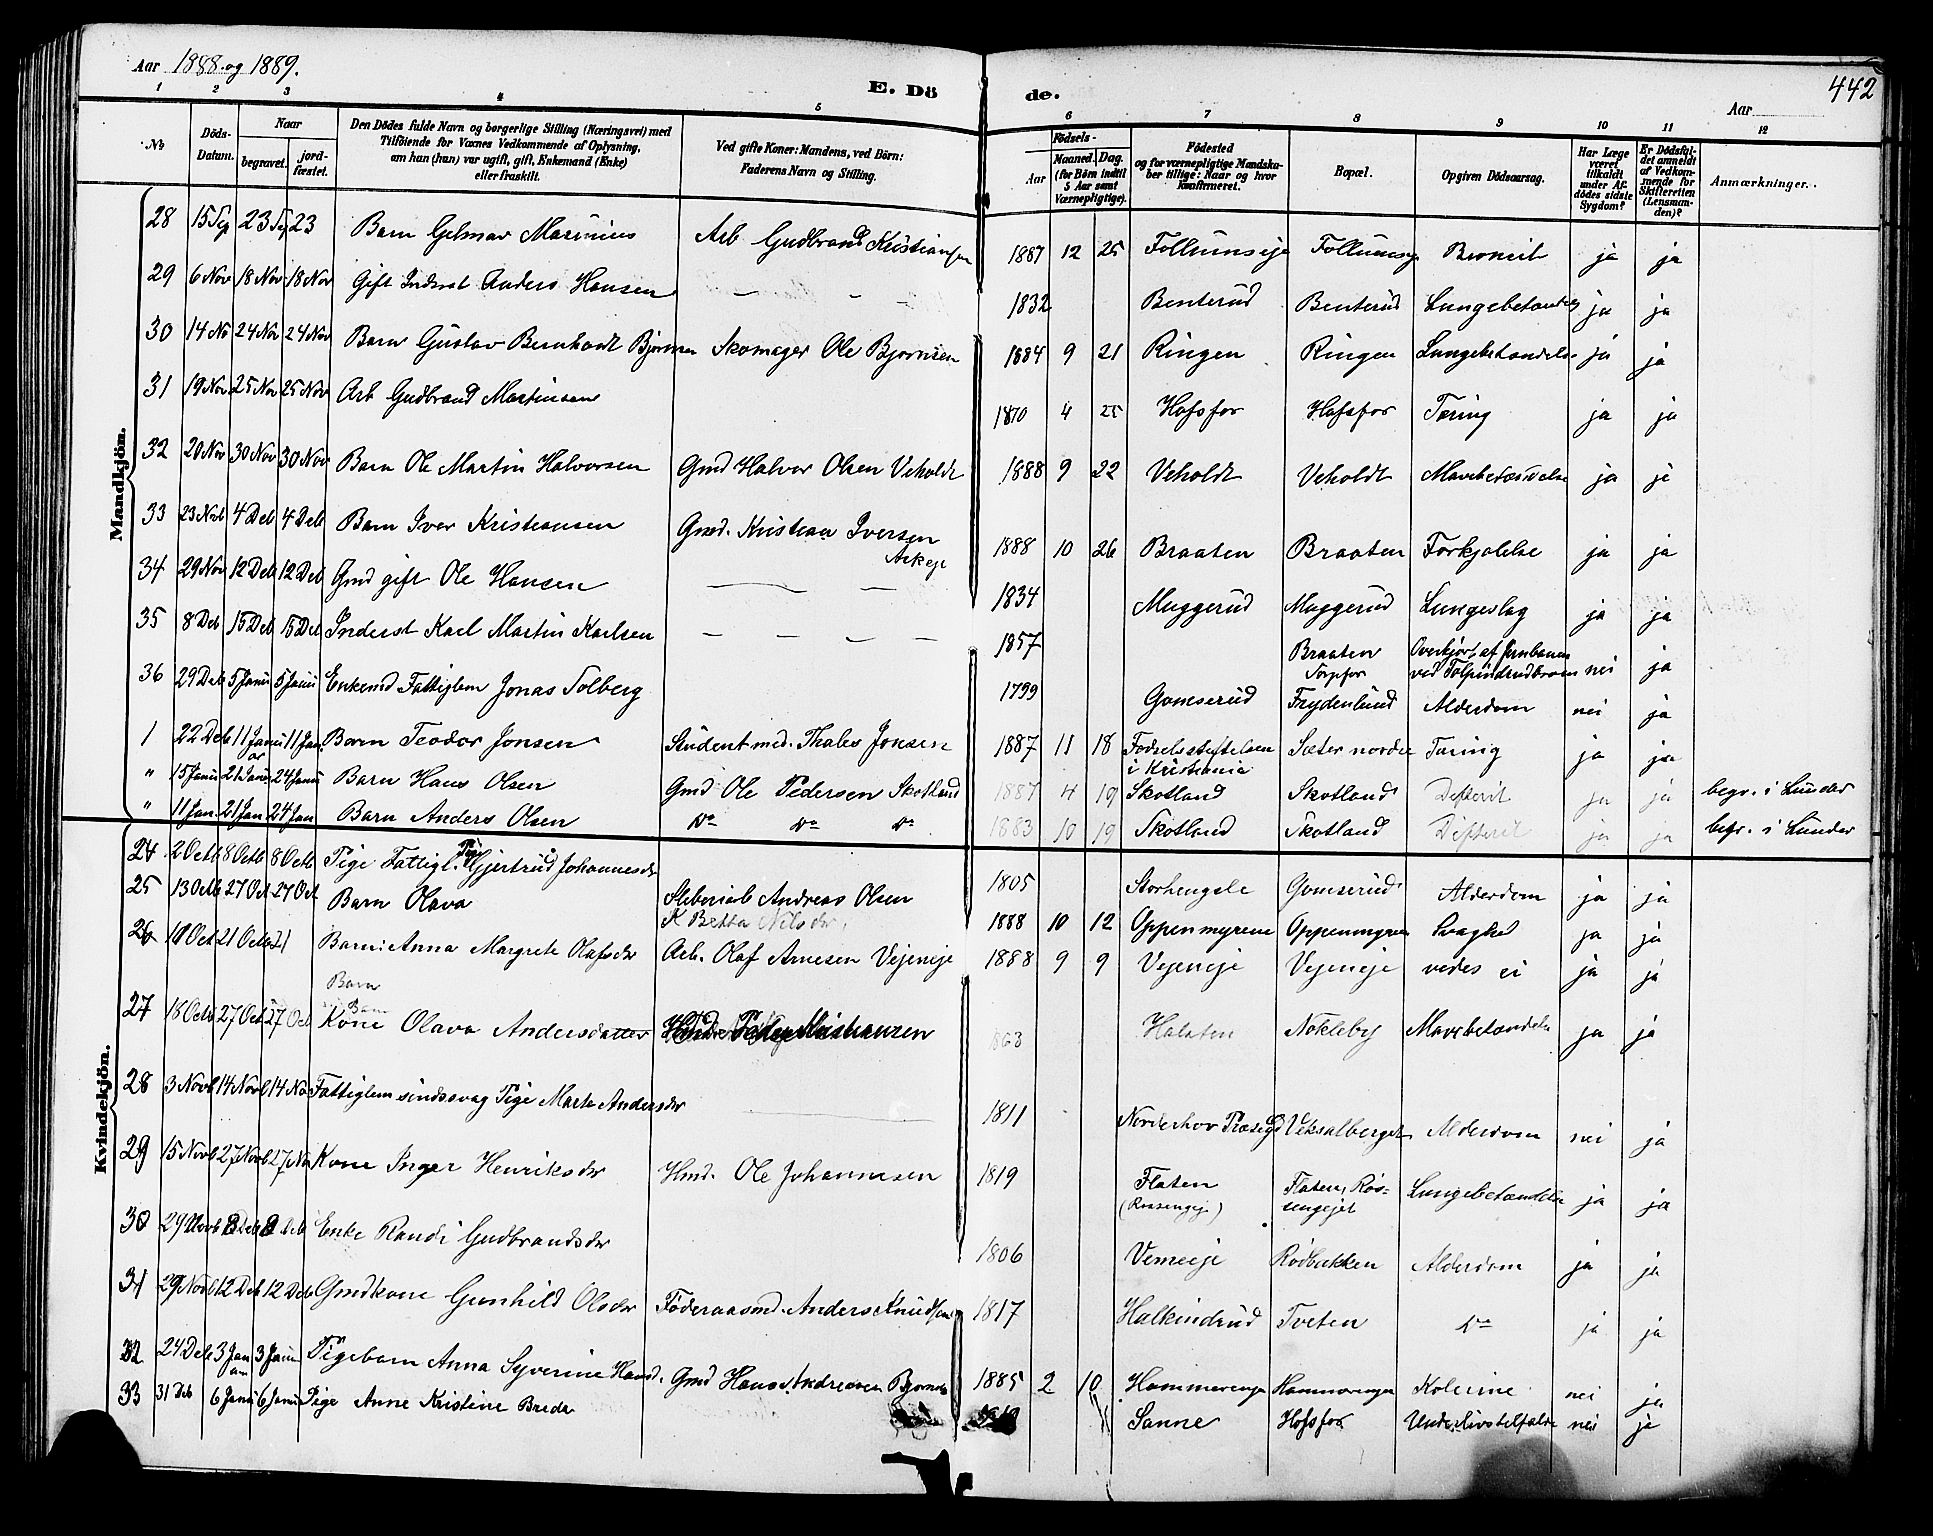 Aar 1888 og 1889.
E. Dö de.
Aar
442
1 2 3 4 5 6 7 8 9 10 11 12
No
Döds-Datum.
Naar
begravet.
jord-fæstet.
Den Dödes fulde Navn og borgerlige Stilling (Næringsvei) med Tilföiende for Vaxnes Vedkommende af Oplysning, om han (hun) var ugift, gift, Enkemand (Enke) eller fraskilt.
Ved gifte Koner: Mandens, ved Börn: Faderens Navn og Stilling.
Födsels-
Aar
Maaned. Dag.
(for Börn indtil 5 Aar samt Værnepligtige).
Födested og for værnepligtige Mandskaber tillige: Naar og hvor konfirmeret.
Bopæl.
Opgiven Dödsaarsag.
Har Læge været tilkaldt under Afdödes sidste Sygdom?
Er Dödsfaldet anmeldt af Vedkommende for Skifteretten (Lensmanden)?
Anmærkninger.
Mandkjön.
28 15 Sep 23 Sep 23 Barn Gelmar Marinius Arb Gudbrand Kristiansen 1887 12 25 Follumseje Follumseje Bronkit ja ja
29 6 Nov 18 Nov 18 Nov Gift Inderst Anders Hansen — — — 1832 Benterud Benterud Lungebetændels ja ja
30 14 No 24 Nov 24 Nov Barn Gustav Bernhardt Bjørnsen Skomager Ole Bjornsen 1884 9 21 Ringen Ringen Lungebetændelse ja ja
31 19 Nov 25 Nov 25 Nov Arb Gudbrand Martinsen 1870 4 25 Hofsfos Hofsfos Tæring ja ja
32 20 Nov 30 Nov 30 Nov Barn Ole Martin Halvorsen Gmd Halvor Olsen Veholdt 1888 9 22 Veholdt Veholdt Mavebetændelse ja ja
33 23 Novb 4 Deb 4 Deb Barn Iver Kristiansen Gmd. Kristian Iversen Askeje 1888 10 26 Braaten Braaten Forkjølelse ja ja
34 29 Nov 12 Deb 12 Deb Gmd gift Ole Hansen — — — 1834 Muggerud Muggerud Lungeslag ja ja
35 8 Deb 15 Deb 15 Deb Inderst Karl Martin Karlsen — — — — 1857 Braaten Torpfos Overkjørt af Jernbanen ved Tolpindrudbroen nei ja
36 29 Deb 5 Janu 5 Janu Enkemd Fattiglem Jonas Solberg 1799 Gomserud Frydenlund Alderdom nei ja
1 22 Deb 11 Januar 11 Jan Barn Teodor Jonsen Student med. Thales Jonsen 1887 11 18 Fødselsstiftelsen i Kristiania Sæter nordre Tæring ja ja
" 15 Janu 21 Janu 24 Janu Barn Hans Olsen Gmd Ole Pedersen Skotland 1887 4 19 Skotland Skotland Difterit ja ja begr. i Lunder
" 11 Jan 21 Jan 24 Jan Barn Anders Olsen Do Do Do 1883 10 19 Skotland Skotland Difterit ja ja begr. i Lunder
Kvindekjön.
24 2 Octb 8 Octb 8 Octb Pige Fattigl. Pige Gjertrud Johannesdr 1805 Storhengsle Gomserud Alderdom ja ja
25 13 Octb 27 Oct 27 Oct Barn Olava Sleberiarb Andreas Olsen K Betta Nilsdr. 1888 10 12 Oppenmyrene Oppenmyren Svaghed ja ja
26 10 Oct 21 Octb 21 Barn: Anna Margrete Olafsdr Arb. Olaf Arnesen Vejeneje 1888 9 9 Vejeneje Vejeneje vedes ei ja ja
Barn
27 18 Octb 27 Oct 27 Oct Kone Olava Andersdatter 1863 Halsten Nokleby Mavebetændelse ja ja
28 3 Novb 14 Novb 14 Nov Fattiglem sindssvag Pige Marte Andersdr 1811 Norderhov Præsegd Veksalberget Alderdom nei ja
29 15 Novb 27 Novb 27 Nov Kone Inger Henriksdr Hmd. Ole Johannesen 1819 Flaten (Rossengeje) Flaten, Røssengejet Lungebetændelse ja ja
30 29 Novb 8 Deb 8 Deb Enke Randi Gudbrandsdr 1806 Vemeeje Rødbækken Alderdom ja ja
31 29 Novb 12 Deb 12 Deb Gmdkone Gunhild Olsdr Føderaasmd. Anders Knudsen 1817 Halkindrud Tveten Do ja ja
32 24 Deb 3 Jan 3 Janu Pigebarn Anna Syverine Hansd. Gmd Hans Andreasen Bjornd 1885 2 10 Hammerenge Hammerengen Kolerine nei ja
33 31 Deb 6 Janu 6 Janu Pige Anne Kristine Breda Sanne Hofsfos Underlivstilfælde nei ja